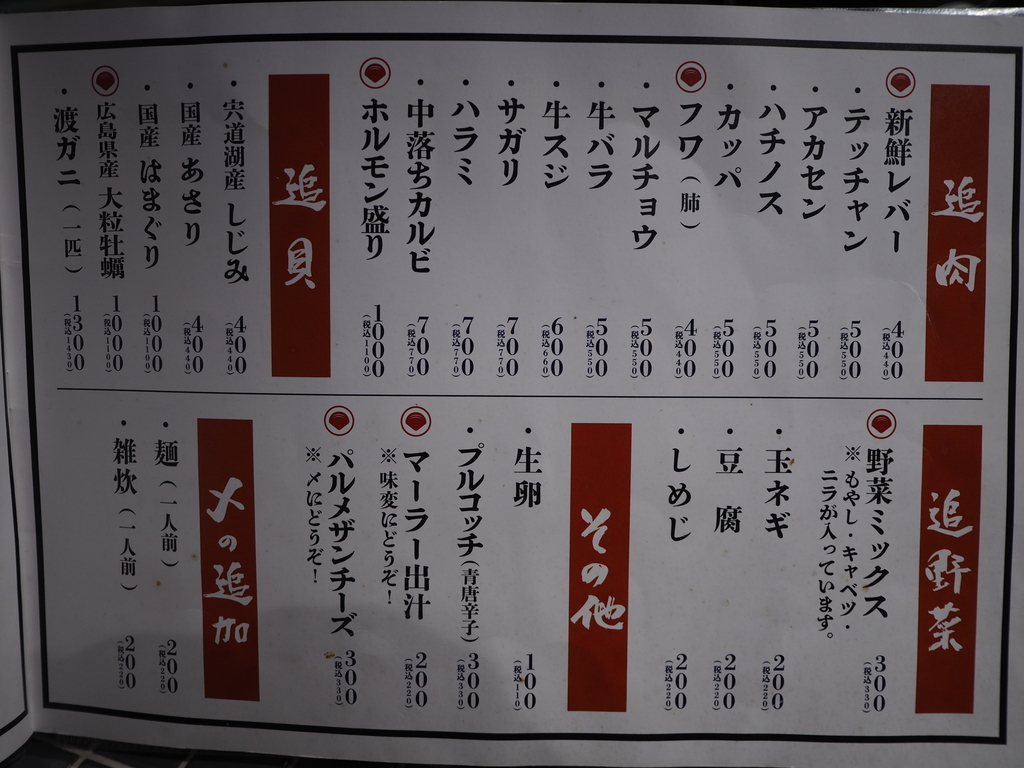 追肉
新鮮レバー 400 (税込440)
・テッチャン 500 (税込550)
・アカセン 500 (税込550)
・ハチノス 500 (税込550)
・カッパ 500 (税込550)
フワ(肺) 400 (税込440)
・マルチョウ 500 (税込550)
・牛バラ 500 (税込550)
・牛スジ 600 (税込660)
・サガリ 700 (税込770)
・ハラミ 700 (税込770)
・中落ちカルビ 700 (税込770)
ホルモン盛り 1000 (税込1100)
追貝
・宍道湖産 しじみ 400 (税込440)
・国産 あさり 400 (税込440)
・国産 はまぐり 1000 (税込1100)
広島県産 大粒牡蠣 1000 (税込1100)
・渡ガニ(一匹) 1300 (税込1430)
追野菜
野菜ミックス 300 (税込330)
※もやし・キャベツ・
ニラが入っています。
・玉ネギ 200 (税込220)
・豆腐 200 (税込220)
・しめじ 200 (税込220)
その他
・生卵 100 (税込110)
・プルコッチ(青唐辛子) 300 (税込330)
マーラー出汁 200 (税込220)
※味変にどうぞ!
パルメザンチーズ 300 (税込330)
※〆にどうぞ!
〆の追加
・麺(一人前) 200 (税込220)
・雑炊(一人前) 200 (税込220)